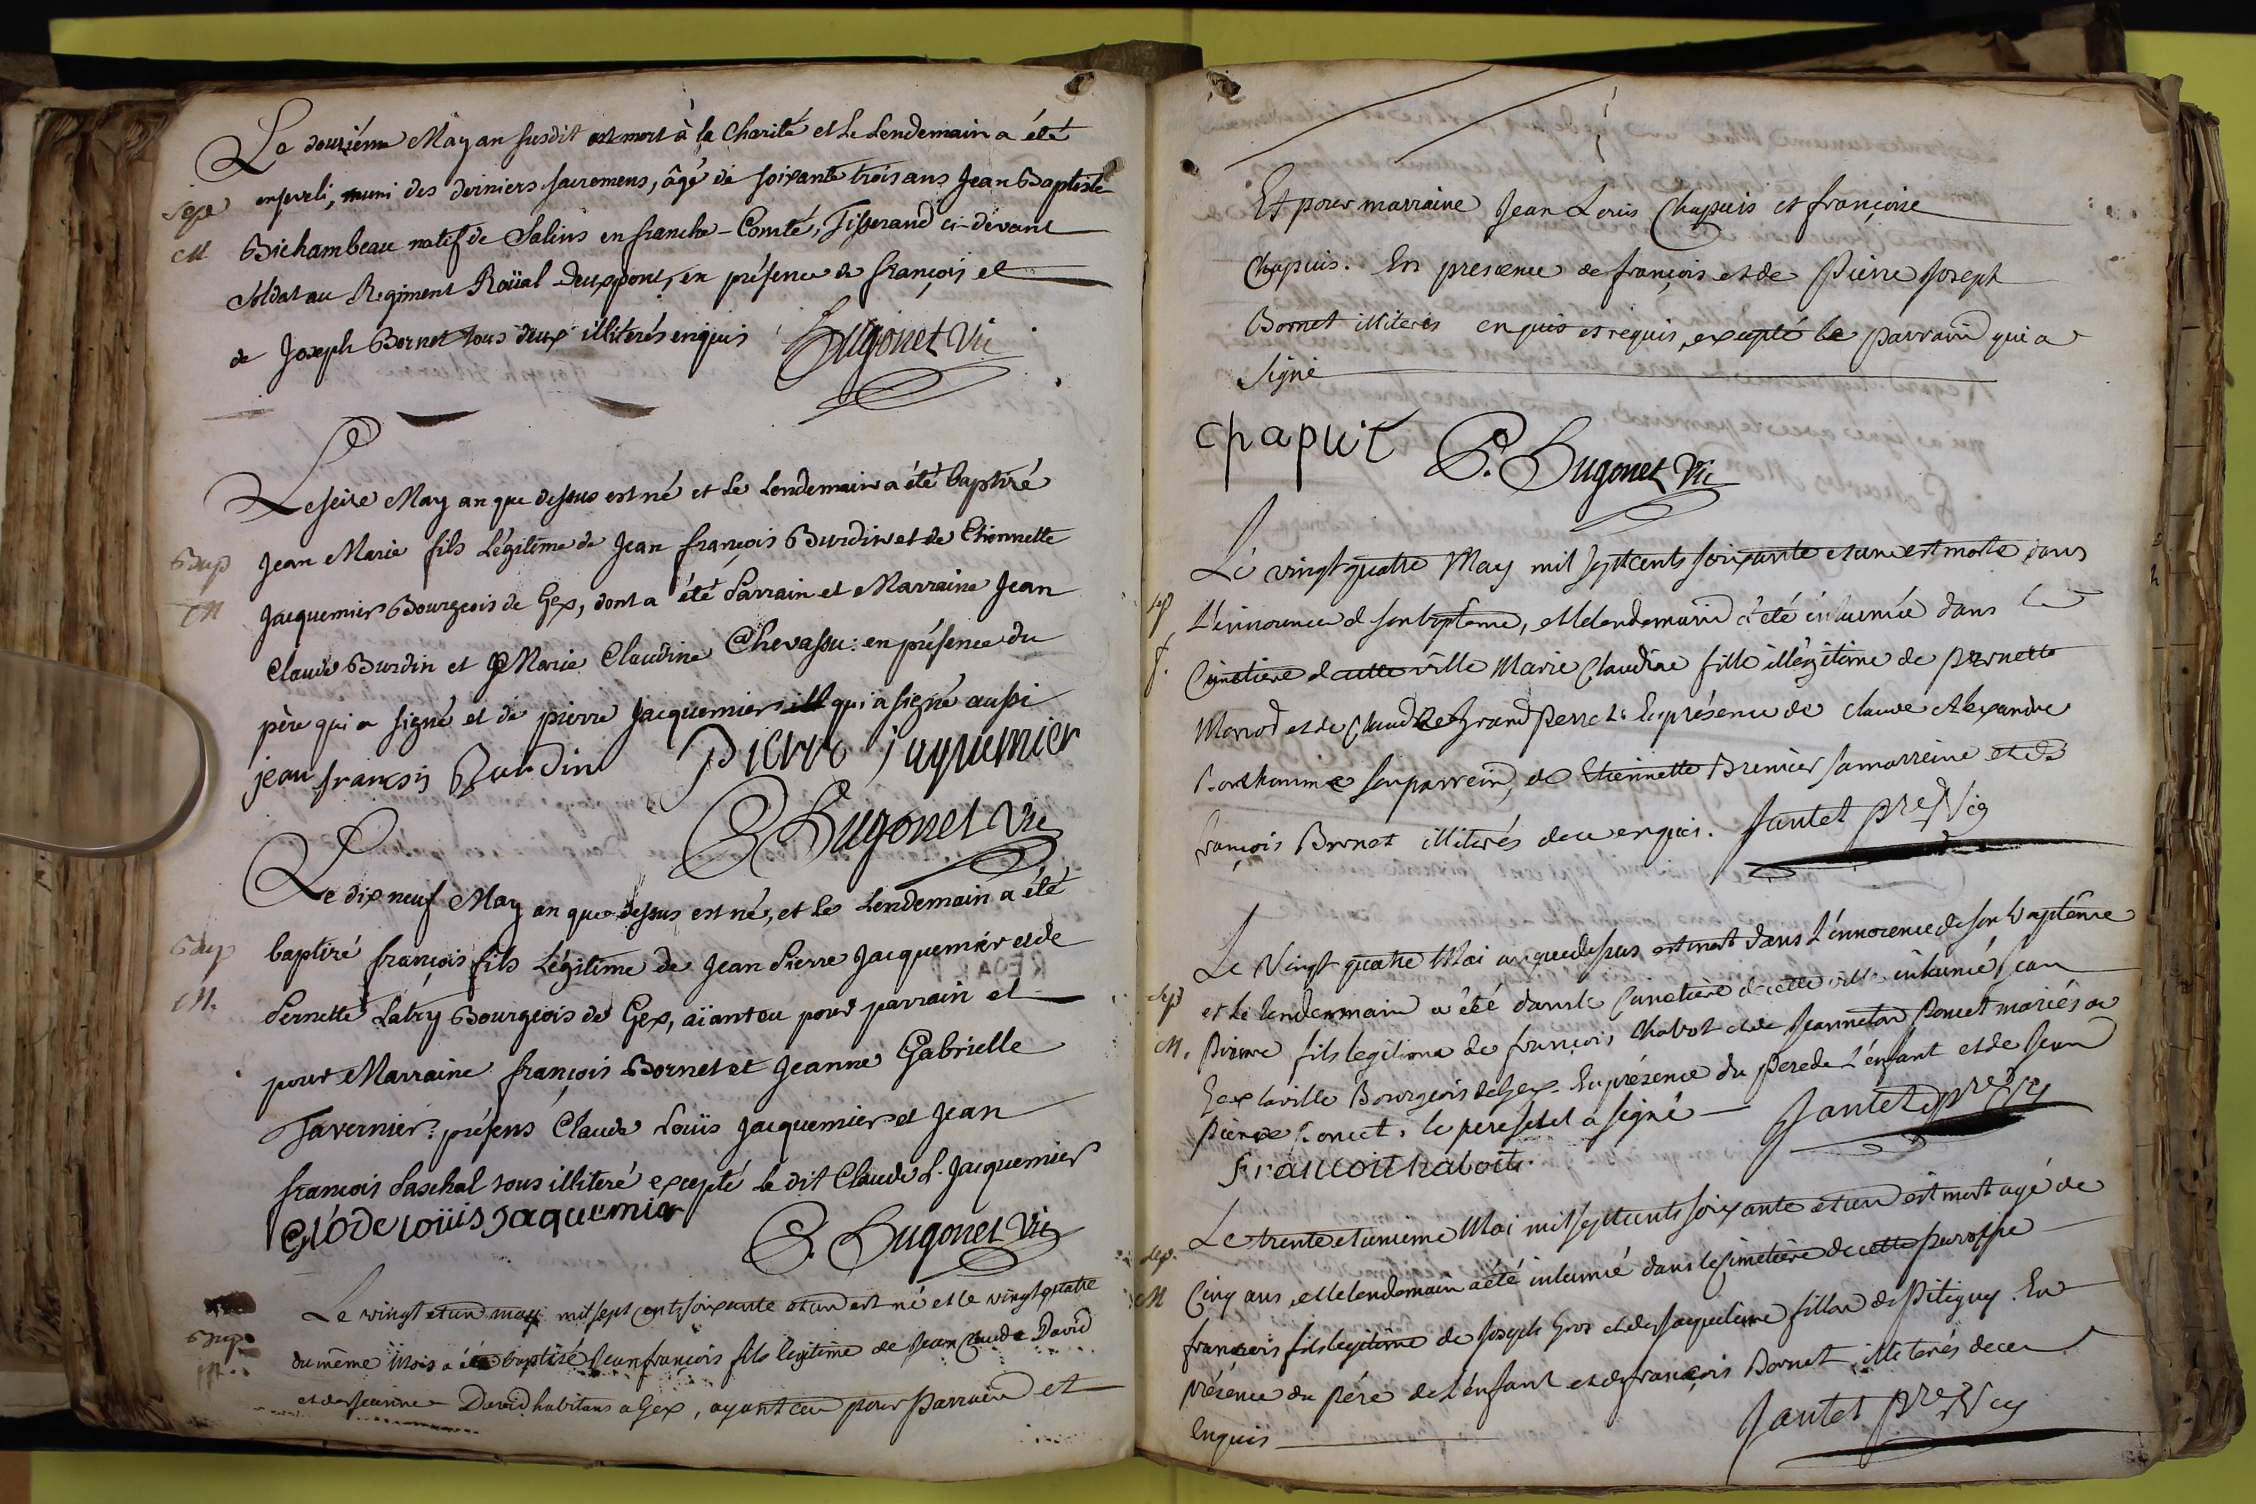 Le douziéme May an susdit est mort à la Charité et le Lendemain a été
Sepe enseveli, muni des derniers sacremens, âgé de soixante trois ans Jean Baptiste
M Bichambeau natif de Salins en franche-Comté, Tisserand ci-devant
Soldat au Regiment Roïial Deuxponts, en présence de françois et
de Joseph Bornet tous deux illiterés enquis Hugonet Vic
Le seize May an que dessus est né et le Lendemain a été baptizé
Bap Jean Marie fils Légitime de Jean françois Burdin et de Etiennette
M Jacquemier Bourgeois de Gex, dont a été Parrain et Marraine Jean
Claude Burdin et Marie Claudine Chevassu: en présence du
père qui a signé et de pierre Jacquemier qui a signé aussi
jean françois Burdin Pierre jaquemier
P. Hugonet Vic
Le dix neuf May an que dessus est né, et le Lendemain a été
Bap baptizé françois fils Légitime de Jean Pierre Jacquemier et de
M. Pernette Latry Bourgeois de Gex, aïant eu pour parrain et
pour Marraine françois Bornet et Jeanne Gabrielle
Tavernier: présens Claude Loüis Jacquemier et Jean
françois Paschal tous illiteré excepté le dit Claude L. Jacquemier
Glode loüis Jaquemier P. Hugonet Vic
Le vingt et un may mil sept cents soixante et un est né et le vingt quatre
Bap du même Mois a été baptisé Jean françois fils légitime de Jean Claude David
et de Jeanne David habitans a Gex, ayant eu pour Parrain et
Et pour marraine Jean Louis Chapuis et françoise
Chapuis. En presence de françois et de Pierre Joseph
Bornet illiterés enquis et requis, excepté le parrain qui a
Signé
chapuit P. Hugonet Vic
Le vingt quatre May mil sept cents soixante et un est morte dans
sep L'innocence de son bapteme, et le lendemain a été inhumée dans le
f. Cimetiere de cette ville Marie Claudine fille illégitime de Pernette
Monod et de Claude Grand Perret. En présence de Claude Alexandre
son parrein, de Etiennette Brenier sa marreine et de
françois Bornet illiterés de ce enquis. Jantet pre Vic
Le Vingt quatre Mai an que dessus est mort dans L'innocence de son baptême
Sep et le lendemain a été dans le Cimetiere de cette ville inhumé Jean
M. Pierre fils legitime de françois Chabot et de Jeanneton Poncet mariés de
Gex la ville Bourgeois de Gex. En présence du pere de L'enfant et de Jean
Pierre Poncet. le pere seul a signé Jantet pre Vic
francoit habot
Le trente et unieme Mai mil sept cents soixante et un est mort agé de
Sep. Cinq ans, et le lendemain a été inhumé dans le Cimetière de cette paroisse
M françois fils legitime de Joseph Gros et de Jaqueline fillon de Pitigny. En
présence du père de l'enfant et de françois Bornet illiterés de ce
Enquis Jantet pre Vic